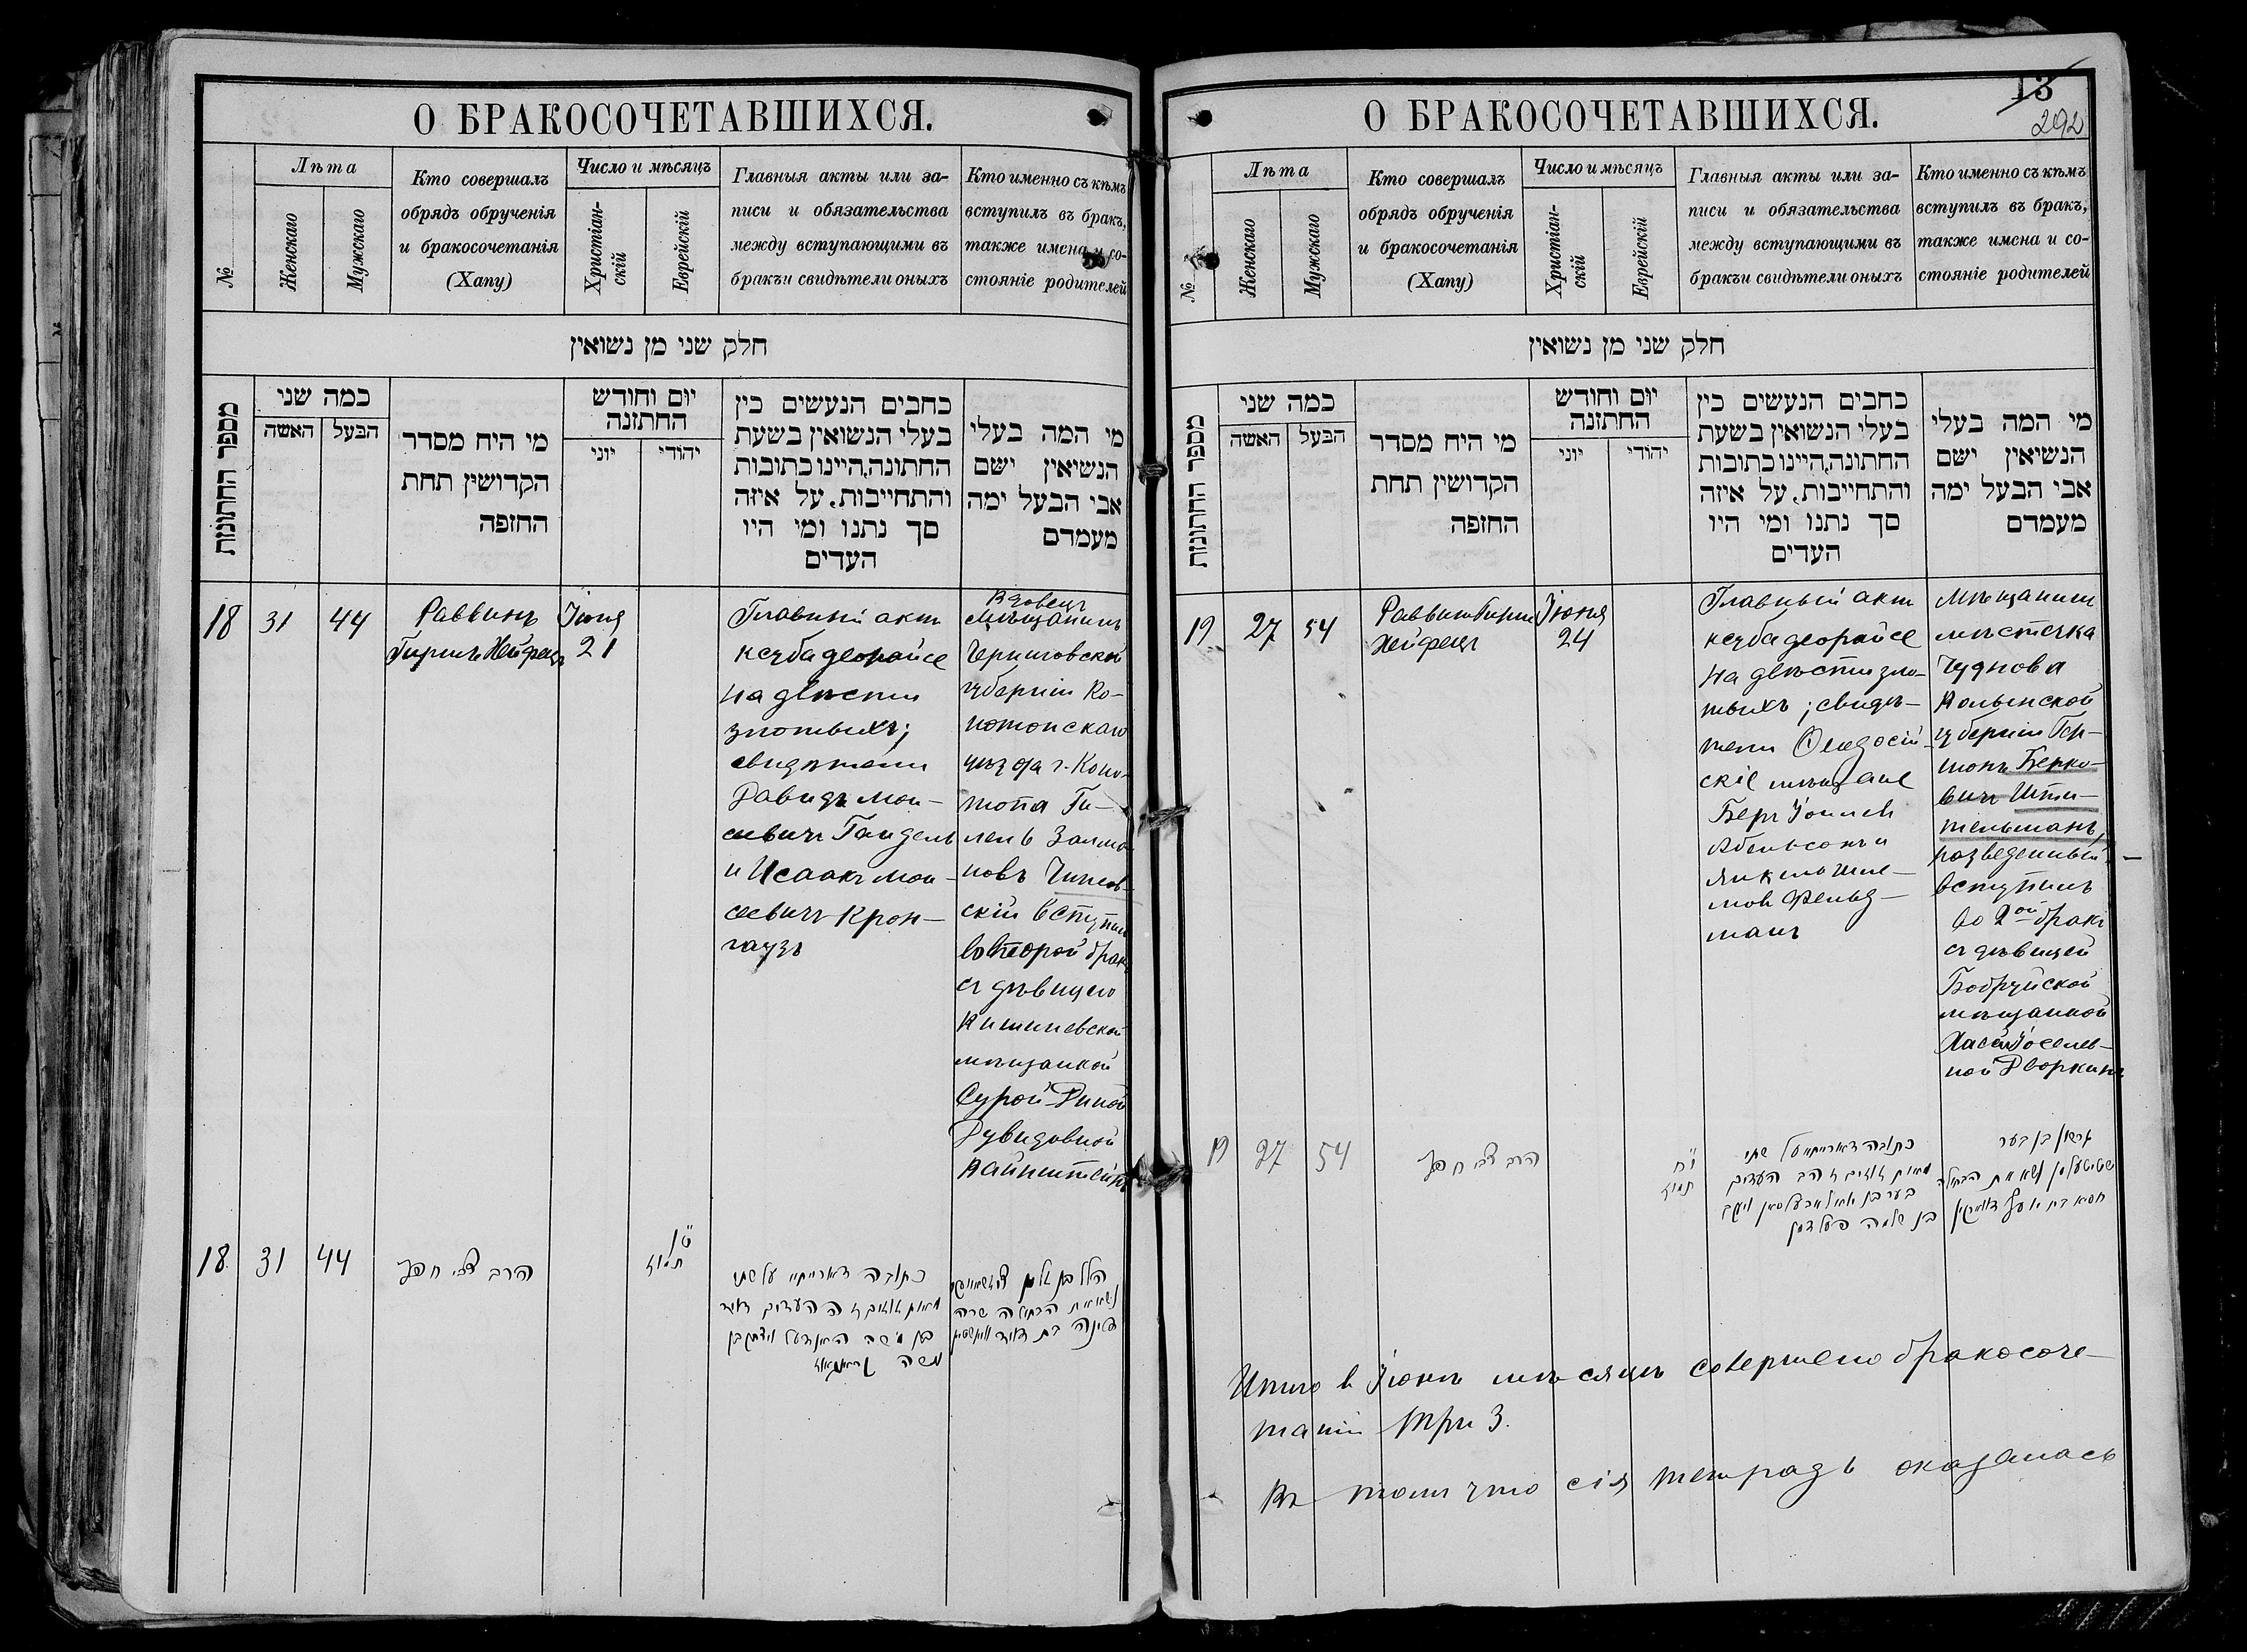 О БРАКОСОЧЕТАВШИХСЯ.
№
Лѣта
Женскаго
Мужскаго
Кто совершалъ
обрядъ обрученія
и бракосочетанія
(Хапу)
Число и мѣсяцъ
Христіан-
скій
Еврейскій
Главныя акты или за-
писи и обязательства
между вступающими въ
бракъи свидѣтели оныхъ
Кто именно съ кѣмъ
вступилъ въ бракъ,
также имена и со-
стояніе родителей
חלק שני מן נשואין
מספר החתונות
כמה שני
האשה
הבעל
מי היה מסדר
הקדושין תחת
החופה
יום וחודש
החתונה
יוני
יהודי
כתבים הנעשים בין
בעלי הנשואין בשעת
החתונה, היינו כתובות
והתחייבות, על איזה
סך נתנו ומי היו
העדים
מי המה בעלי
הנשיאין ישם
אבי הבעל ימה
מעמדם
18
31
44
Раввинъ
Гиршъ Хейфецъ
Іюня
21
Главный актъ
кеуба деорайсе
на двѣсти
злотыхъ;
свидѣтели
Давидъ Мои-
сеевичъ Гандель
и Исаакъ Мои-
сеевичъ Крон-
гаузъ
Вдовецъ
Мѣщанинъ
Черниговской
губерніи Ко-
нотопскаго
уѣзда г. Коно-
топа Ги-
лель Залма-
новъ
скій вступилъ
во второй бракъ
съ дѣвицею
Кишиневской
мѣщанкой
Сурой-Диной
Дувидовной
Вайнштейнъ
18
31
44
הרב צבי חפץ
ט"ו
תמוז
כתובה דאורייתא על שתי
מאות זהובים העדים דוד
בן משה האנדעל ויצחק בן
משה
הלל בן זלמן
נשא את הבתולה שרה
דינה בת דוד
О БРАКОСОЧЕТАВШИХСЯ.
13
292
№
Лѣта
Женскаго
Мужскаго
Кто совершалъ
обрядъ обрученія
и бракосочетанія
(Хапу)
Число и мѣсяцъ
Христіан-
скій
Еврейскій
Главныя акты или за-
писи и обязательства
между вступающими въ
бракъи свидѣтели оныхъ
Кто именно съ кѣмъ
вступилъ въ бракъ,
также имена и со-
стояніе родителей
חלק שני מן נשואין
מספר החתונות
כמה שני
האשה
הבעל
מי היה מסדר
הקדושין תחת
החופה
יום וחודש
החתונה
יוני
יהודי
כתבים הנעשים בין
בעלי הנשואין בשעת
החתונה, היינו כתובות
והתחייבות, על איזה
סך נתנו ומי היו
העדים
מי המה בעלי
הנשיאין ישם
אבי הבעל ימה
מעמדם
19
27
54
Раввинъ Гиршъ
Хейфецъ
Іюня
24
Главный актъ
кеуба деорайсе
на двѣсти зло-
тыхъ; свидѣ-
тели Ѳеодосій-
скіе мѣщане
Беръ
Абельсонъ и
Янкель Шле-
мов Фельд-
манъ
Мѣщанинъ
мѣстечка
Чуднова
Волынской
губерніи Гер-
шонъ Берко-
вичъ Шти-
тельманъ,
разведенный
вступилъ
во 2ой бракъ
съ дѣвицей
Бобруйской
мѣщанкой
Хасей Іоселев-
ной Дворкинъ
19
27
54
הרב צבי חפץ
י"ח
תמוז
כתובה דאורייתא על שתי
מאות זהובים העדים
בער בן
בן שלמה פעלדמן
גרשון בן בער
שטיטעלמן נשא את הבתולה
חסיא בת יוסף דווארקין
Итого въ Іюнѣ мѣсяцѣ совершено бракосоче-
таній три 3.
Въ томъ что сія тетрадь оказалась